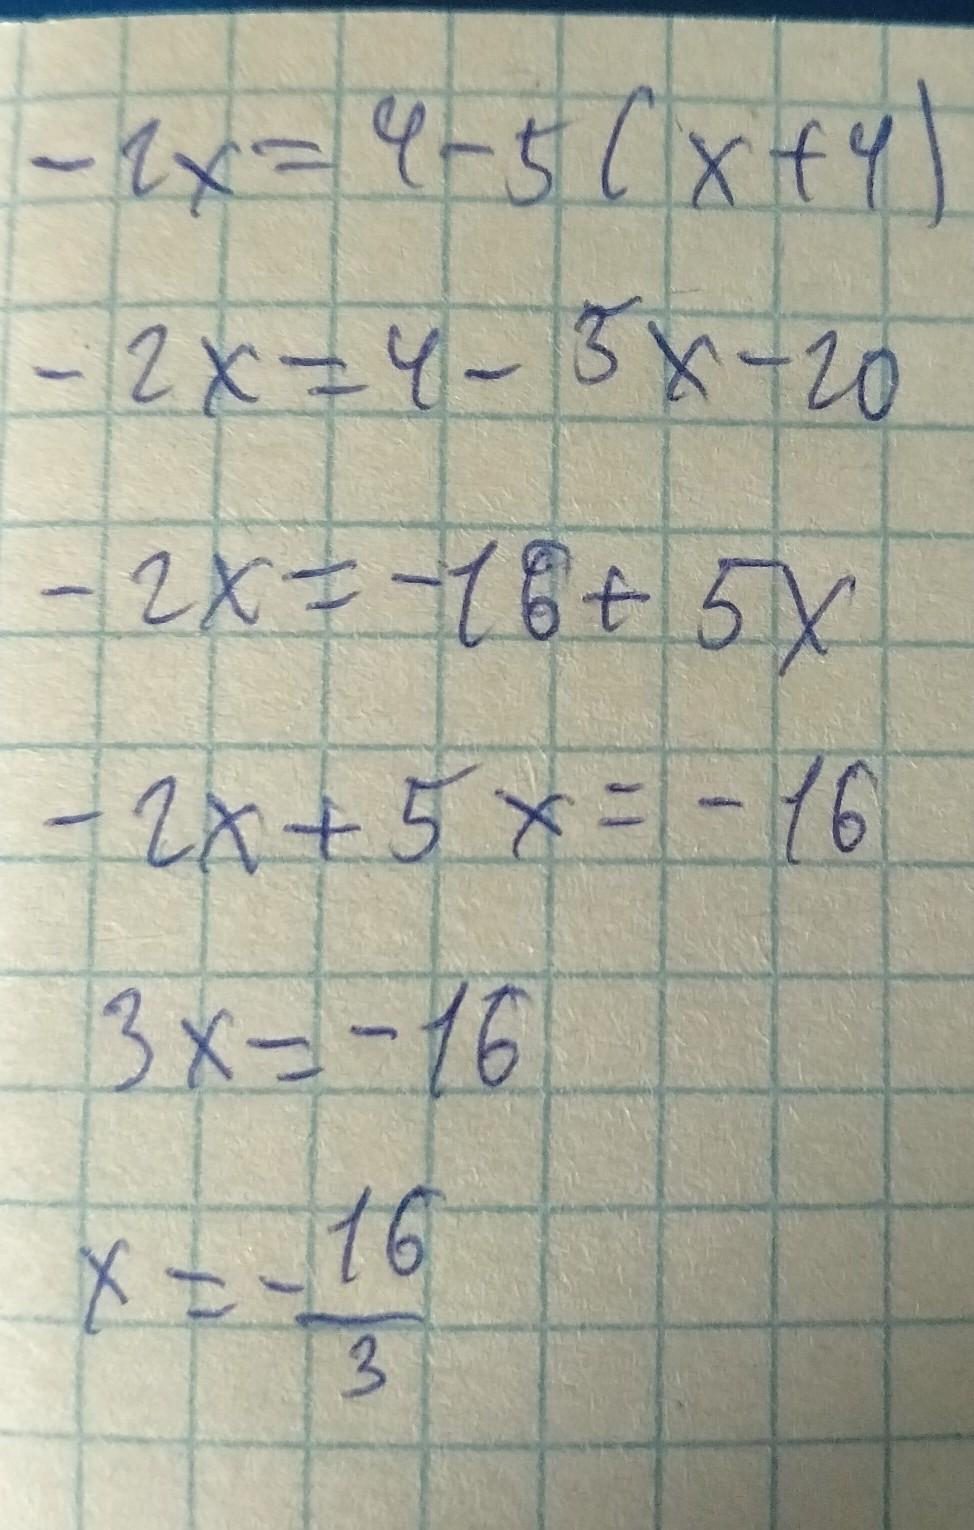 -2x=4-5(x+4)
-2x=4-5x-20
-2x=-16+5x
-2x+5x=-16
3x=-16
x=-16/3